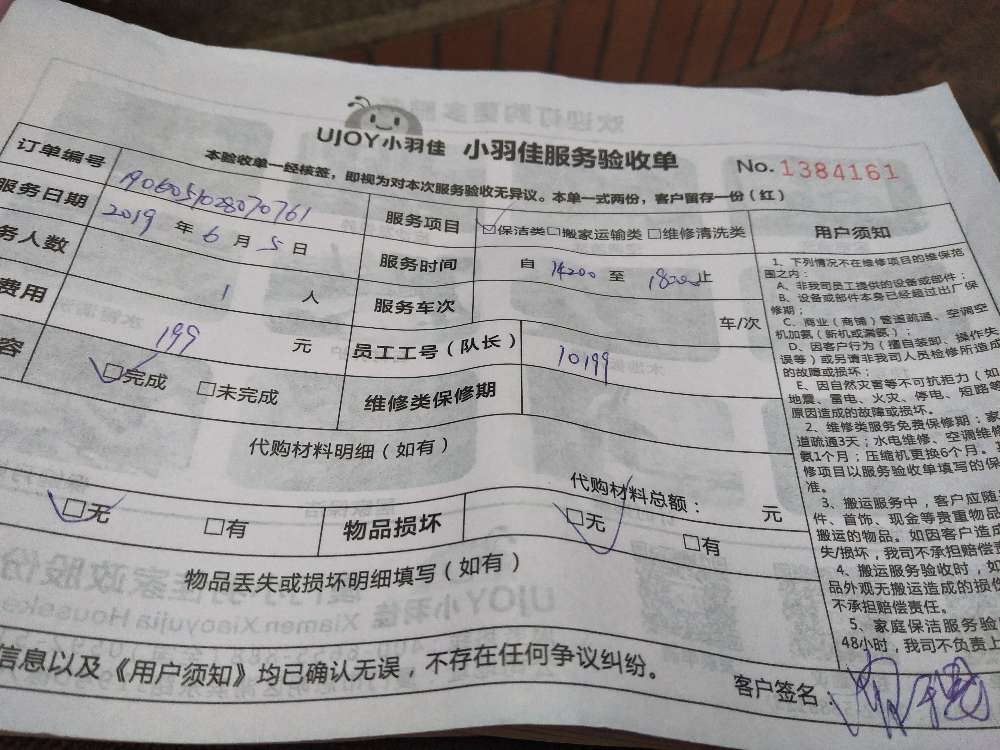 UJOY小羽佳 小羽佳服务验收单
No. 1384161
本验收单一经核签，即视为对本次服务验收无异议。本单一式两份，客户留存一份（红）
订单编号 1906051028070761
服务项目 □保洁类□搬家运输类□维修清洗类
服务日期 2019 年 6 月 5 日
服务时间 自 14:00 至 18:00 止
务人数 1 人
服务车次 车/次
费用 199 元
员工工号（队长） 10199
容 □完成 □未完成
维修类保修期
代购材料明细（如有）
代购材料总额： 元
□无 □有 物品损坏 □无 □有
物品丢失或损坏明细填写（如有）
信息以及《用户须知》均已确认无误，不存在任何争议纠纷。
客户签名：
用户须知
1、下列情况不在维修项目的维保范
围之内：
A、非我司员工提供的设备或部件；
B、设备或部件本身已经超过出厂保
修期；
C、商业（商铺）管道疏通、空调空
机加氨（新机或漏氨）；
D、因客户行为（擅自装卸、操作失
误等）或另请非我司人员检修所造成
的故障或损坏；
E、因自然灾害等不可抗拒力（如
地震、雷电、火灾、停电、短路等
原因造成的故障或损坏。
2、维修类服务免费保修期：家
道疏通3天；水电维修、空调维修
氨1个月；压缩机更换6个月。
修项目以服务验收单填写的保
准。
3、搬运服务中，客户应随
件、首饰、现金等贵重物品
搬运的物品。如因客户造成
失/损坏，我司不承担赔偿责
4、搬运服务验收时，如
品外观无搬运造成的损
不承担赔偿责任。
5、家庭保洁服务验
48小时，我司不负责上